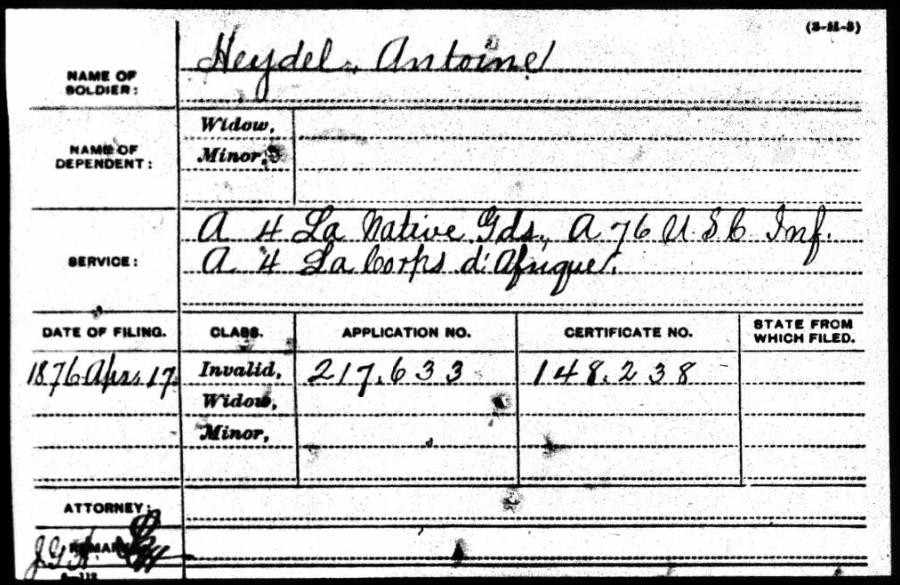 (3-M-3)
NAME OF SOLDIER: Heydel, Antoine
NAME OF DEPENDENT:
Widow,
Minor,
SERVICE:
A 4 La Native Gds., A 76 U.S.C. Inf.
A 4 La Corps d'Afrique.
DATE OF FILING. CLASS. APPLICATION NO. CERTIFICATE NO. STATE FROM WHICH FILED.
1876 Apr. 17. Invalid, 217.633 148.238
Widow,
Minor,
ATTORNEY:
REMARKS